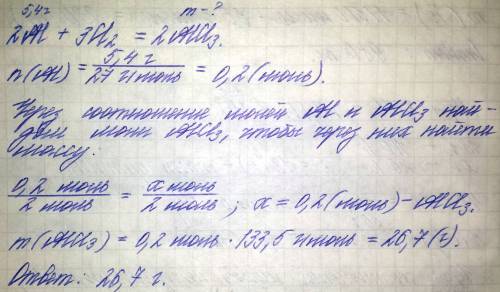 5,4 г m-?
2Al + 3Cl2 = 2AlCl3.
n(Al) = 5,4 г / 27 г/моль = 0,2 (моль).
Через соотношение молей Al и AlCl3 най-
дем моли AlCl3, чтобы через них найти
массу:
0,2 моль / 2 моль = x моль / 2 моль ; x = 0,2 (моль) - AlCl3.
m(AlCl3) = 0,2 моль · 133,5 г/моль = 26,7 (г).
Ответ: 26,7 г.